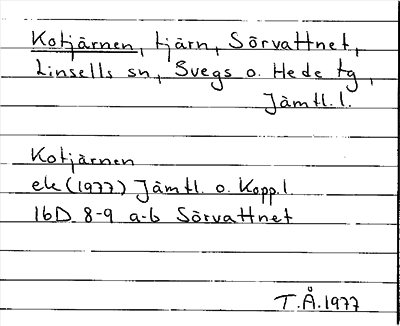 Kotjärnen, tjärn, Sörvattnet,
Linsells sn, Svegs o. Hede tg,
Jämtl. l.
Kotjärnen
ek (1977) Jämtl. o. Kopp. l.
16D 8-9 a-b Sörvattnet
T.Å. 1977